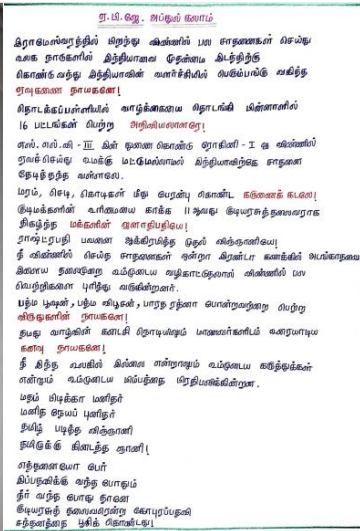 ஏ.பி.ஜே. அப்துல் கலாம்
இராமேஸ்வரத்தில் பிறந்து விண்ணில் பல சாதனைகள் செய்து
உலக நாடுகளில் இந்தியாவை முதன்மை இடத்திற்கு
கொண்டு வந்து இந்தியாவின் வளர்ச்சியில் பெரும்பங்கு வகித்த
ஏவுகணை நாயகனே!
தொடக்கப்பள்ளியில் வாழ்க்கையை தொடங்கி பின்னாளில்
16 பட்டங்கள் பெற்ற அறிவியலாளரே!
எஸ்.எல்.வி - III இன் துணை கொண்டு ரோகிணி - I ஐ விண்ணில்
ஏவச்செய்து உமக்கு மட்டுமல்லாமல் இந்தியாவிற்கே சாதனை
தேடித்தந்த வள்ளலே.
மரம், செடி, கொடிகள் மீது பேரன்பு கொண்ட கருணைக் கடலே!
குடிமக்களின் உரிமையை காக்க 11 ஆவது குடியரசுத்தலைவராக
திகழ்ந்த மக்களின் ஜனாதிபதியே!
ராஷ்ட்ரபதி பவனை ஆக்கிரமித்த முதல் விஞ்ஞானியே!
நீ விண்ணில் செய்த சாதனைகள் ஒன்றா இரண்டா கணக்கில் அடங்காதவை
இளைய தலைமுறை உம்முடைய வழிகாட்டுதலால் விண்ணில் பல
வெற்றிகளை புரிந்து வருகின்றனர்.
பத்ம பூஷன், பத்ம விபூசன், பாரத ரத்னா போன்றவற்றை பெற்ற
விருதுகளின் நாயகனே!
தமது வாழ்வின் கடைசி நொடியிலும் மாணவர்களிடம் உரையாடிய
கனவு நாயகனே!
நீ இந்த உலகில் இல்லை என்றாலும் உம்முடைய கருத்துக்கள்
என்றும் உம்முடைய பிம்பத்தை பிரதிபலிக்கின்றன.
மதம் பிடிக்கா மனிதர்
மனித நேயப் புனிதர்
தமிழ் படித்த விஞ்ஞானி
தமிழுக்கு கிடைத்த ஞானி!
எத்தனையோ பேர்
இப்பதவிக்கு வந்த போதும்
நீர் வந்த போது தானே
குடியரசுத் தலைவரென்ற கோபுரப்பதவி
சந்தனத்தை பூசிக் கொண்டது!